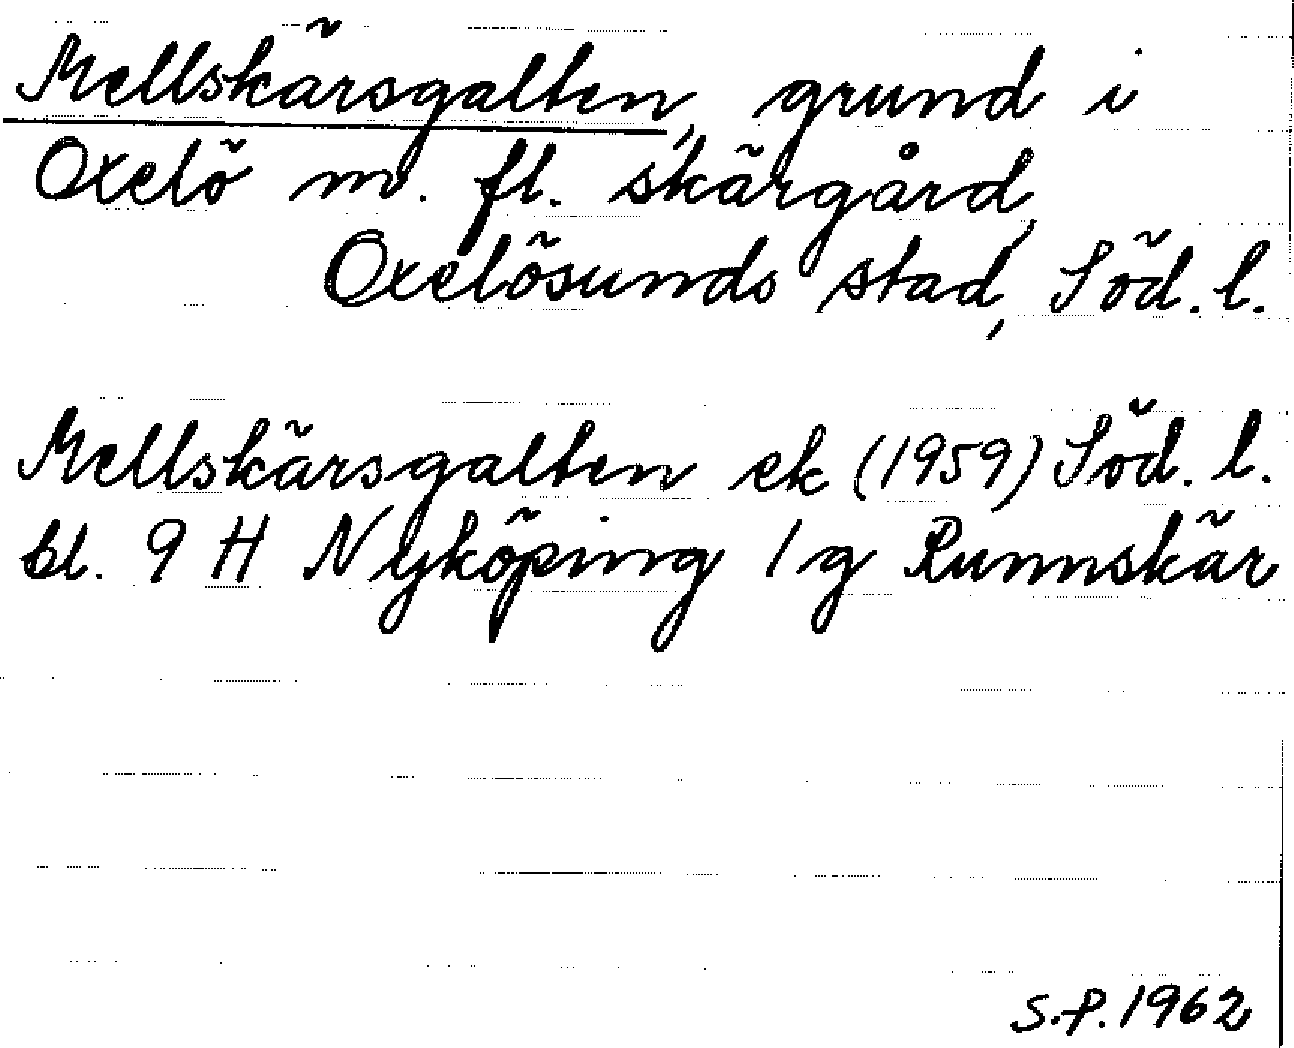 Mellskärsgalten, grund i
Oxelö m. fl. skärgård,
Oxelösunds stad, Söd. l.
Mellskärsgalten ek (1959) Söd. l.
bl. 9 H Nyköping 1 g Runnskär
S.P. 1962